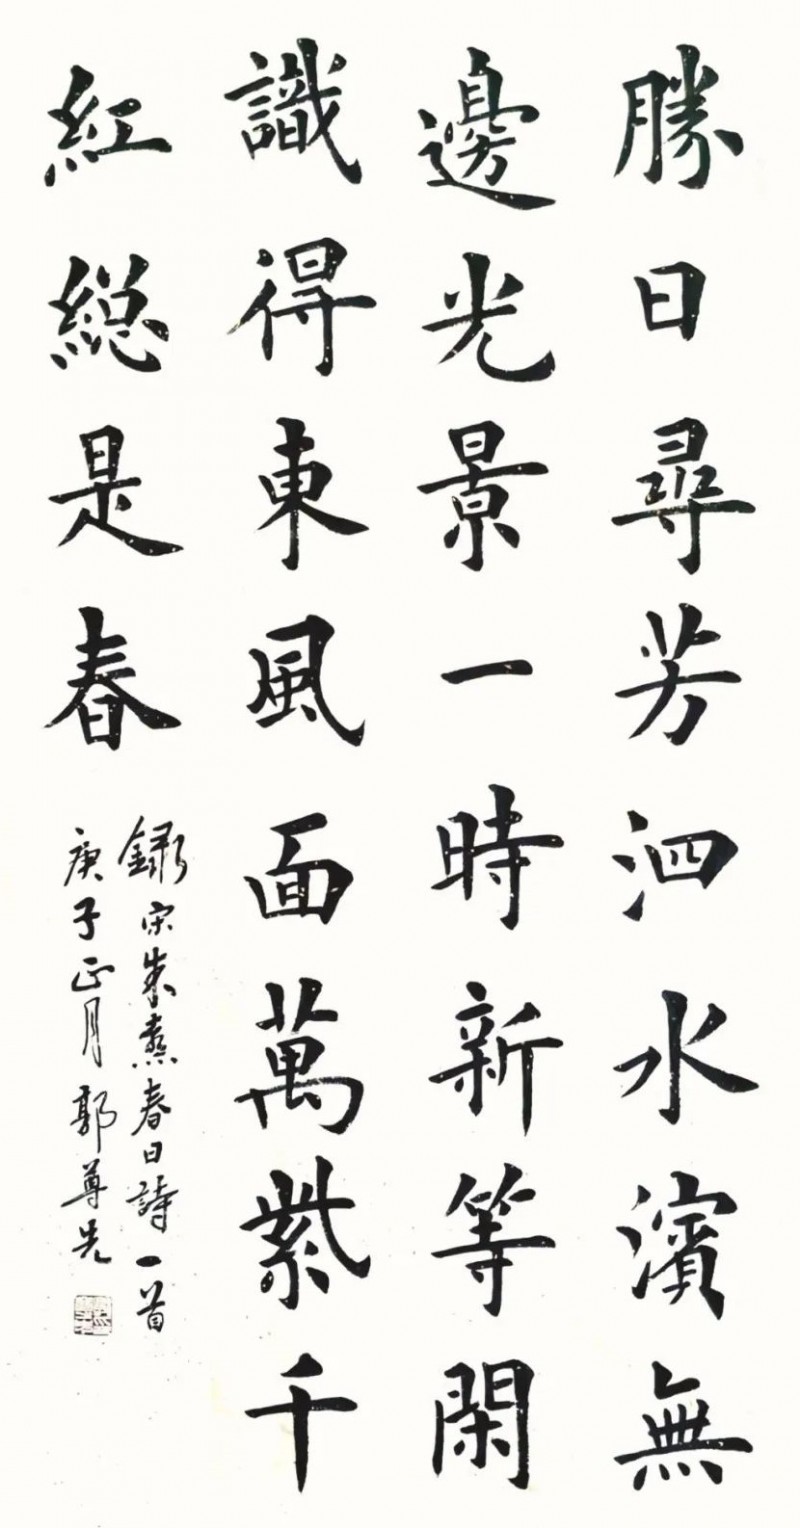 勝日尋芳泗水濱無
邊光景一時新等閑
識得東風面萬紫千
紅総是春
錄宋朱熹春日詩一首
庚子正月郭尊先